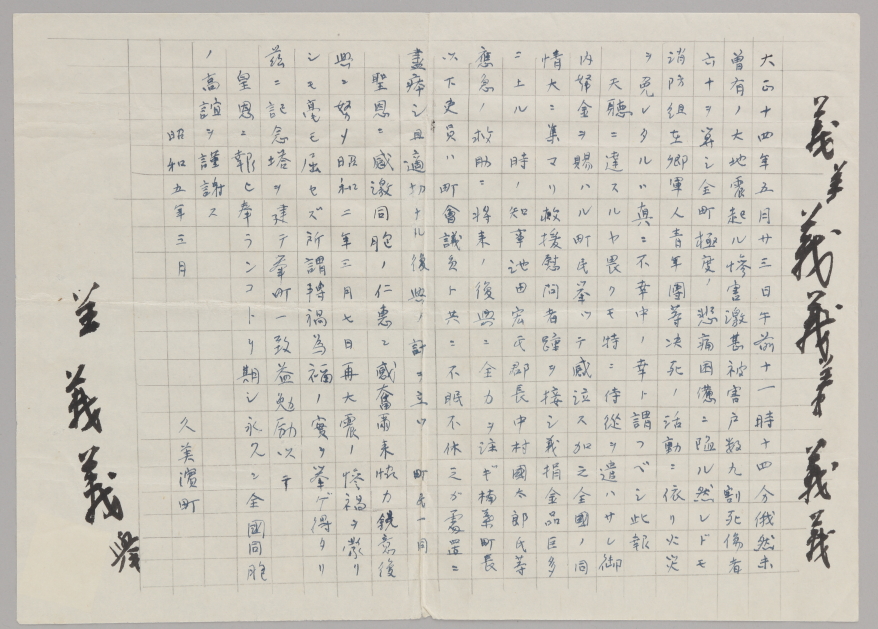 義
義
義
義
義
大正十四年五月廿三日午前十一時十四分俄然未
曽有ノ大地震起ル惨害激甚被害戸数九割死傷者
六十ヲ算シ全町極度ノ悲痛困憊ニ陥ル然レドモ
消防組在郷軍人青年團等决死ノ活動ニ依リ火災
ヲ免レタルハ真ニ不幸中ノ幸ト謂フベシ此報
天聴ニ達スルヤ畏クモ特ニ侍從ヲ遣ハサレ御
内帑金ヲ賜ハル町民挙ツテ感泣ス加之全國ノ同
情大ニ集マリ救援慰問者踵ヲ接シ義捐金品巨多
ニ上ル時ノ知事池田宏氏郡長中村國太郎氏等
應急ノ救助ニ将来ノ復興ニ全力ヲ注ギ楠葉町長
以下吏員ハ町會議員ト共ニ不眠不休ミガ處置ニ
盡瘁シ且適切ナル復興ノ計ヲ立ツ町民一同
聖恩ニ感激同胞ノ仁惠ニ感奮爾来協力鋭意復
興ニ努ム昭和二年三月七日再大震ノ惨禍ヲ蒙リ
シモ毫モ屈セズ所謂轉禍為福ノ實ヲ挙ゲ得タリ
茲ニ記念塔ヲ建テ挙町一致益勉励以テ
皇恩ニ報ヒ奉ランコトヲ期シ永久ニ全國同胞
ノ高誼ヲ謹謝ス
昭和五年三月
久美濱町
義
義